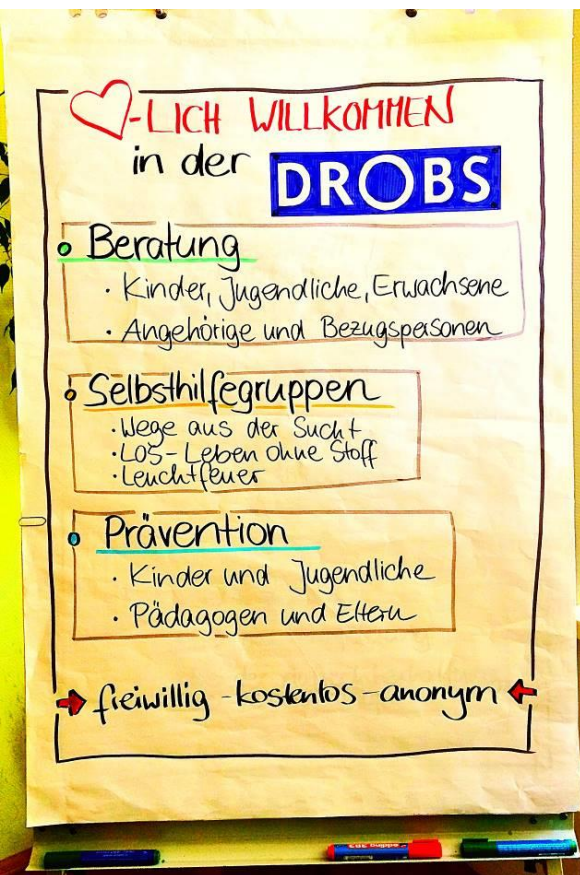 ♡-LICH WILLKOMMEN
in der DROBS
Beratung
· Kinder, Jugendliche, Erwachsene
· Angehörige und Bezugspersonen
Selbsthilfegruppen
· Wege aus der Sucht
· LOS - Leben ohne Stoff
· Leuchtfeuer
Prävention
· Kinder und Jugendliche
· Pädagogen und Eltern
freiwillig - kostenlos - anonym
edding 383